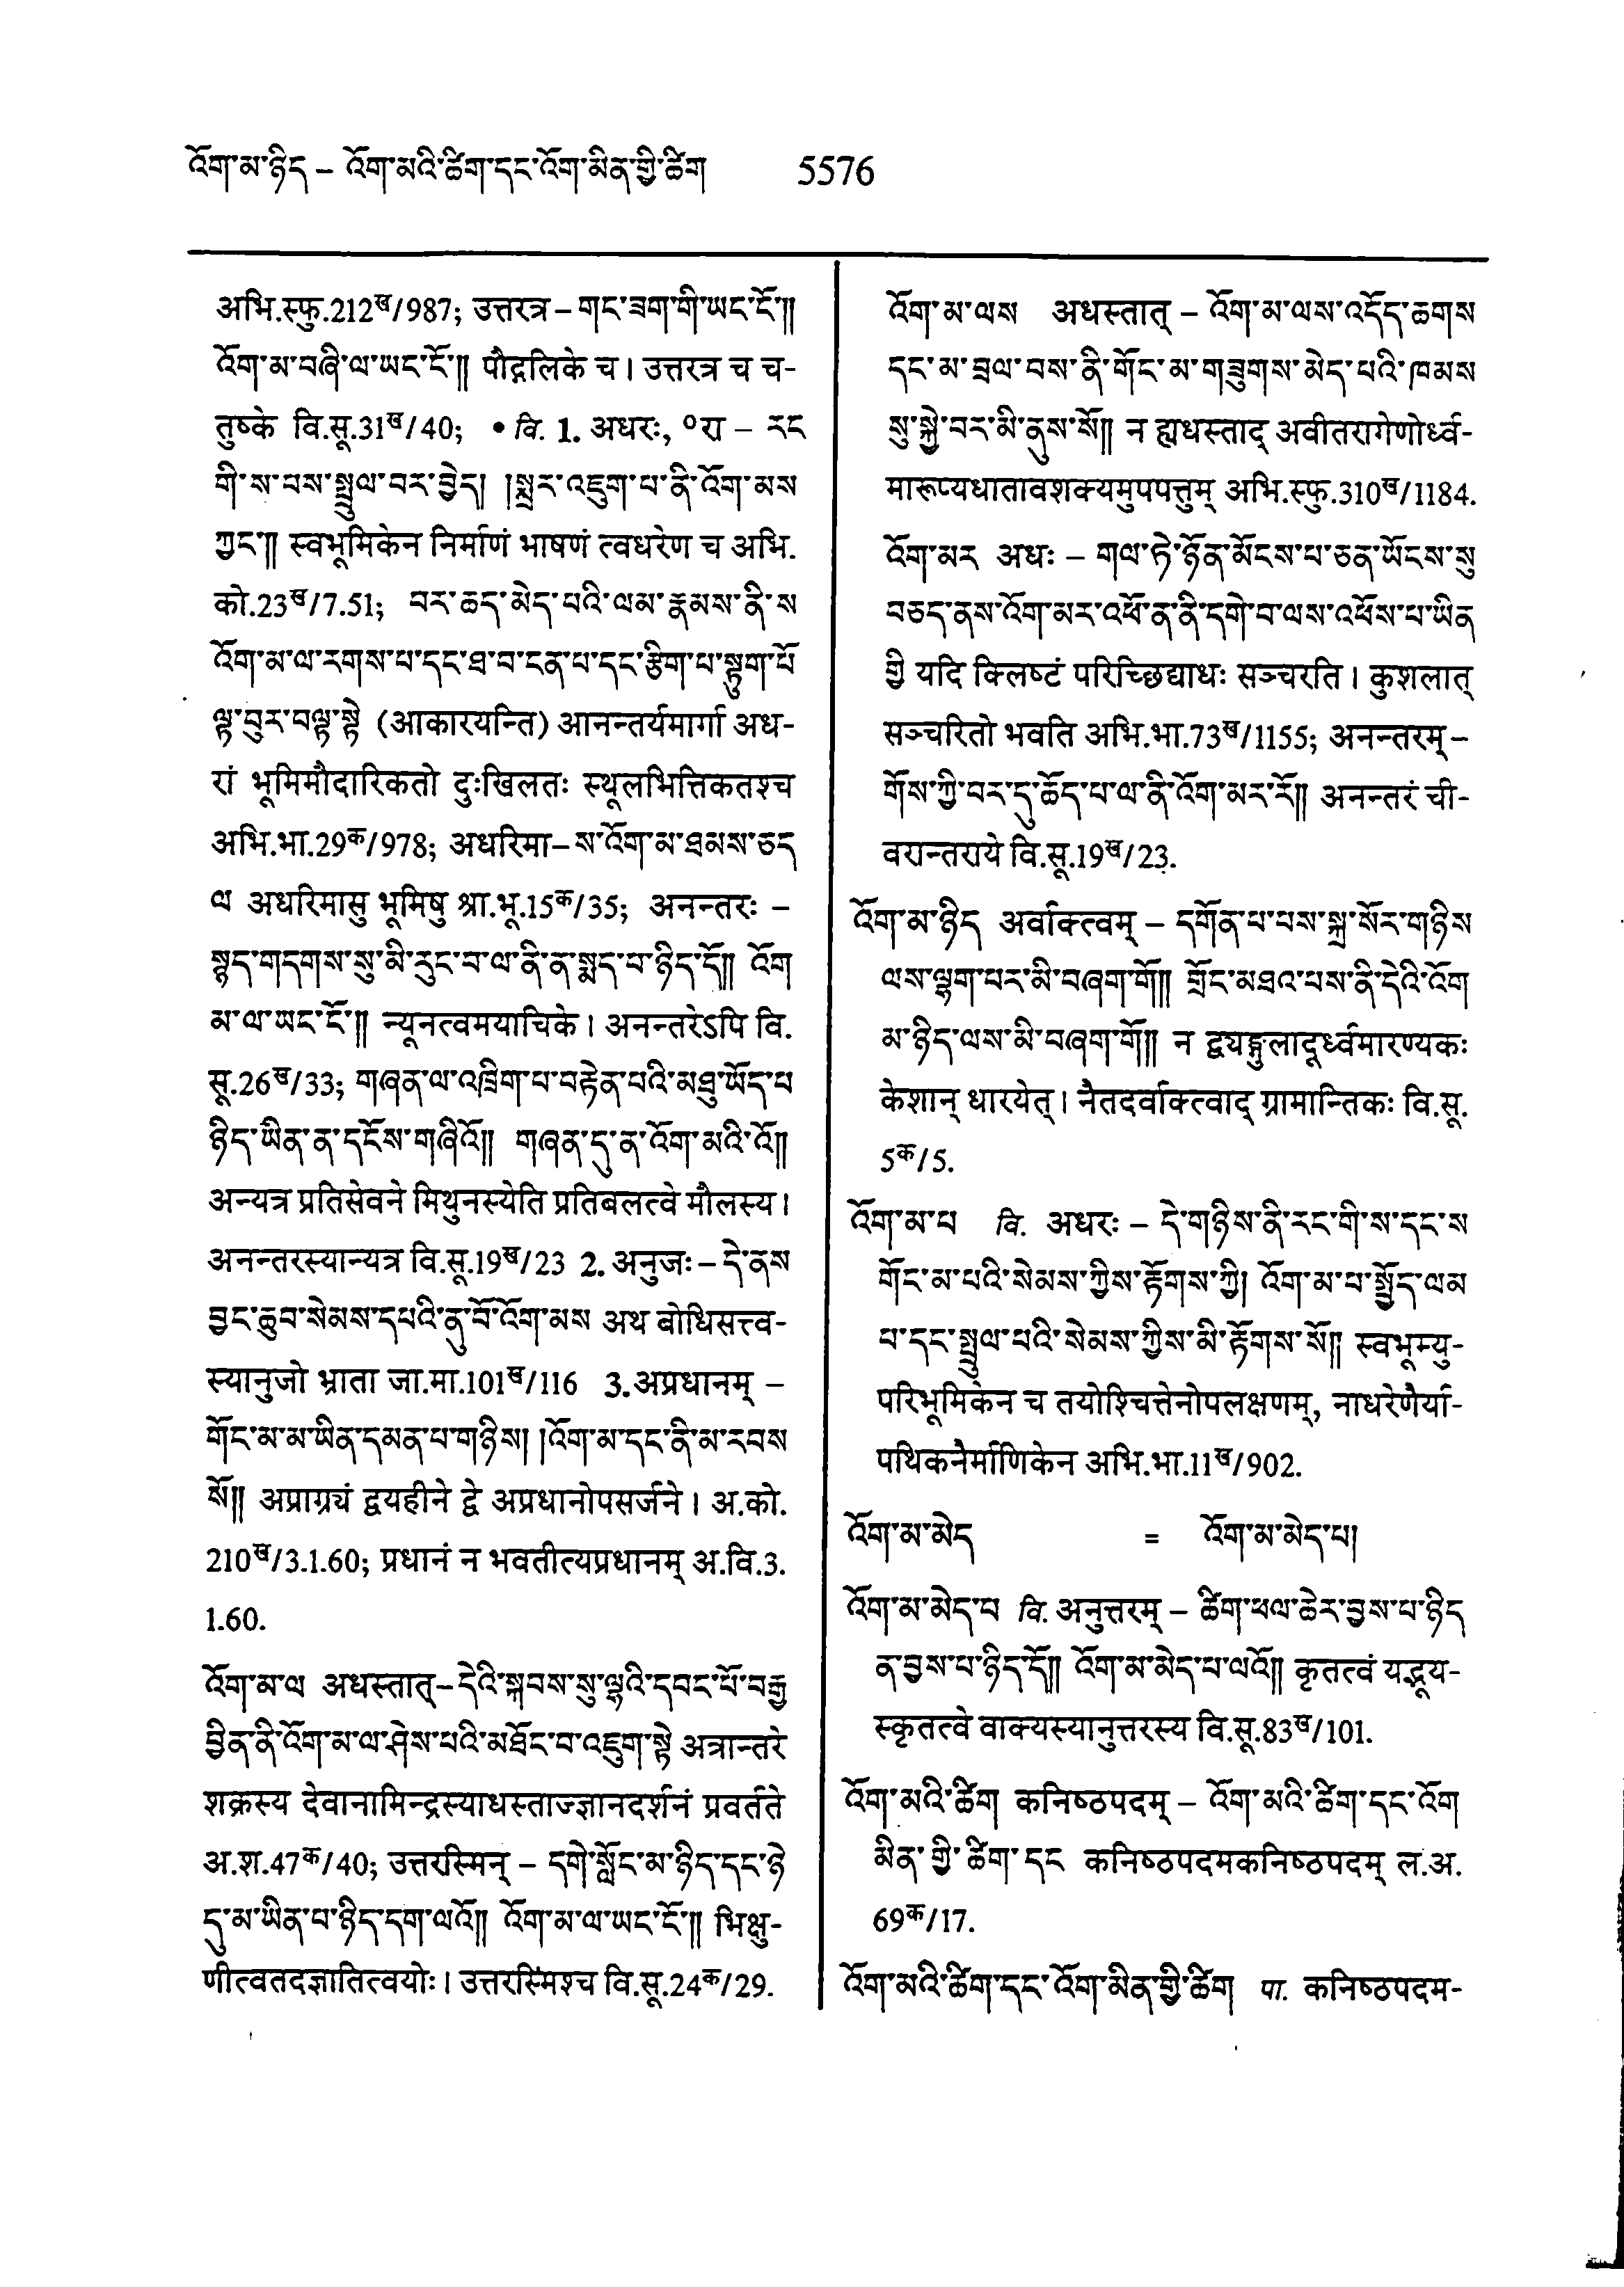 འོག་མ་ཉིད – འོག་མའི་ཚིག་དང་འོག་མིན་གྱི་ཚིག 5576
अभि.स्फु.212ख/987; उत्तरत्र – གང་ཟག་གི་ཡང་ངོ་༎
འོག་མ་བཞི་ལ་ཡང་ངོ་༎ पौद्गलिके च। उत्तरत्र च च-
तुष्के वि.सू.31ख/40; • वि. 1. अधरः, ०रा – རང
གི་ས་བས་སྤྲུལ་བར་བྱེད། །སྨྲར་འཇུག་པ་ནི་འོག་མས
ཀྱང་༎ स्वभूमिकेन निर्माणं भाषणं त्वधरेण च अभि.
को.23ख/7.51; བར་ཆད་མེད་པའི་ལམ་རྣམས་ནི་ས
འོག་མ་ལ་རགས་པ་དང་ཐ་བ་ངན་པ་དང་རྩིག་པ་སྟུག་པོ
ལྟ་བུར་བལྟ་སྟེ (आकारयन्ति) आनन्तर्यमार्गा अध-
रां भूमिमौदारिकतो दुःखिलतः स्थूलभित्तिकतश्च
अभि.भा.29क/978; अधरिमा – ས་འོག་མ་ཐམས་ཅད
ལ अधरिमासु भूमिषु श्रा.भू.15क/35; अनन्तरः –
སྙད་གདགས་སུ་མི་རུང་བ་ལ་ནི་ན་སྨད་པ་ཉིད་དོ༎ འོག
མ་ལ་ཡང་ངོ་༎ न्यूनत्वमयाचिके। अनन्तरेऽपि वि.
सू.26ख/33; གཞན་ལ་འཁྲིག་པ་བརྟེན་པའི་མཐུ་ཡོད་པ
ཉིད་ཡིན་ན་དངོས་གཞིའོ༎ གཞན་དུ་ན་འོག་མའི་འོ༎
अन्यत्र प्रतिसेवने मिथुनस्येति प्रतिबलत्वे मौलस्य।
अनन्तरस्यान्यत्र वि.सू.19ख/23 2. अनुजः – དེ་ནས
བྱང་ཆུབ་སེམས་དཔའི་ནུ་བོ་འོག་མས अथ बोधिसत्त्व-
स्यानुजो भ्राता जा.मा.101ख/116 3. अप्रधानम् –
གོང་མ་མ་ཡིན་དམན་པ་གཉིས། །འོག་མ་དང་ནི་མ་རབས
སོ༎ अप्राग्र्यं द्वयहीने द्वे अप्रधानोपसर्जने। अ.को.
210ख/3.1.60; प्रधानं न भवतीत्यप्रधानम् अ.वि.3.
1.60.
འོག་མ་ལ अधस्तात् – དེའི་སྐབས་སུ་ལྷའི་དབང་པོ་བརྒྱ
བྱིན་ནི་འོག་མ་ལ་ཤེས་པའི་མཐོང་བ་འཇུག་སྟེ अत्रान्तरे
शक्रस्य देवानामिन्द्रस्याधस्ताज्ज्ञानदर्शनं प्रवर्तते
अ.श.47क/40; उत्तरस्मिन् – དགེ་སློང་མ་ཉིད་དང་ཉེ
དུ་མ་ཡིན་པ་ཉིད་དག་ལའོ༎ འོག་མ་ལ་ཡང་ངོ་༎ भिक्षु-
णीत्वतदज्ञातित्वयोः। उत्तरस्मिंश्च वि.सू.24क/29.
འོག་མ་ལས अधस्तात् – འོག་མ་ལས་འདོད་ཆགས
དང་མ་བྲལ་བས་ནི་གོང་མ་གཟུགས་མེད་པའི་ཁམས
སུ་སྐྱེ་བར་མི་ནུས་སོ༎ न ह्यधस्ताद् अवीतरागेणोर्ध्व-
मारूप्यधातावशक्यमुपपत्तुम् अभि.स्फु.310ख/1184.
འོག་མར अधः – གལ་ཏེ་ཉོན་མོངས་པ་ཅན་ཡོངས་སུ
བཅད་ནས་འོག་མར་འཕོ་ན་ནི་དགེ་བ་ལས་འཕོས་པ་ཡིན
གྱི यदि क्लिष्टं परिच्छिद्याधः सञ्चरति। कुशलात्
सञ्चरितो भवति अभि.भा.73ख/1155; अनन्तरम् –
གོས་ཀྱི་བར་དུ་ཆོད་པ་ལ་ནི་འོག་མར་རོ༎ अनन्तरं ची-
वरान्तराये वि.सू.19ख/23.
འོག་མ་ཉིད अर्वाक्त्वम् – དགོན་པ་པས་སྐྲ་སོར་གཉིས
ལས་ལྷག་པར་མི་བཞག་གོ༎ གྲོང་མཐའ་པས་ནི་དེའི་འོག
མ་ཉིད་ལས་མི་བཞག་གོ༎ न द्व्यङ्गुलादूर्ध्वमारण्यकः
केशान् धारयेत्। नैतदर्वाक्त्वाद् ग्रामान्तिकः वि.सू.
5क/5.
འོག་མ་པ वि. अधरः – དེ་གཉིས་ནི་རང་གི་ས་དང་ས
གོང་མ་པའི་སེམས་ཀྱིས་རྟོགས་ཀྱི། འོག་མ་པ་སྤྱོད་ལམ
པ་དང་སྤྲུལ་པའི་སེམས་ཀྱིས་མི་རྟོགས་སོ༎ स्वभूम्यु-
परिभूमिकेन च तयोश्चित्तेनोपलक्षणम्, नाधरेणैर्या-
पथिकनैर्माणिकेन अभि.भा.11ख/902.
འོག་མ་མེད = འོག་མ་མེད་པ།
འོག་མ་མེད་པ वि. अनुत्तरम् – ཚིག་ཕལ་ཆེར་བྱས་པ་ཉིད
ན་བྱས་པ་ཉིད་དོ༎ འོག་མ་མེད་པ་ལའོ༎ कृतत्वं यद्भूय-
स्कृतत्वे वाक्यस्यानुत्तरस्य वि.सू.83ख/101.
འོག་མའི་ཚིག कनिष्ठपदम् – འོག་མའི་ཚིག་དང་འོག
མིན་གྱི་ཚིག་དང कनिष्ठपदमकनिष्ठपदम् ल.अ.
69क/17.
འོག་མའི་ཚིག་དང་འོག་མིན་གྱི་ཚིག पा. कनिष्ठपदम-